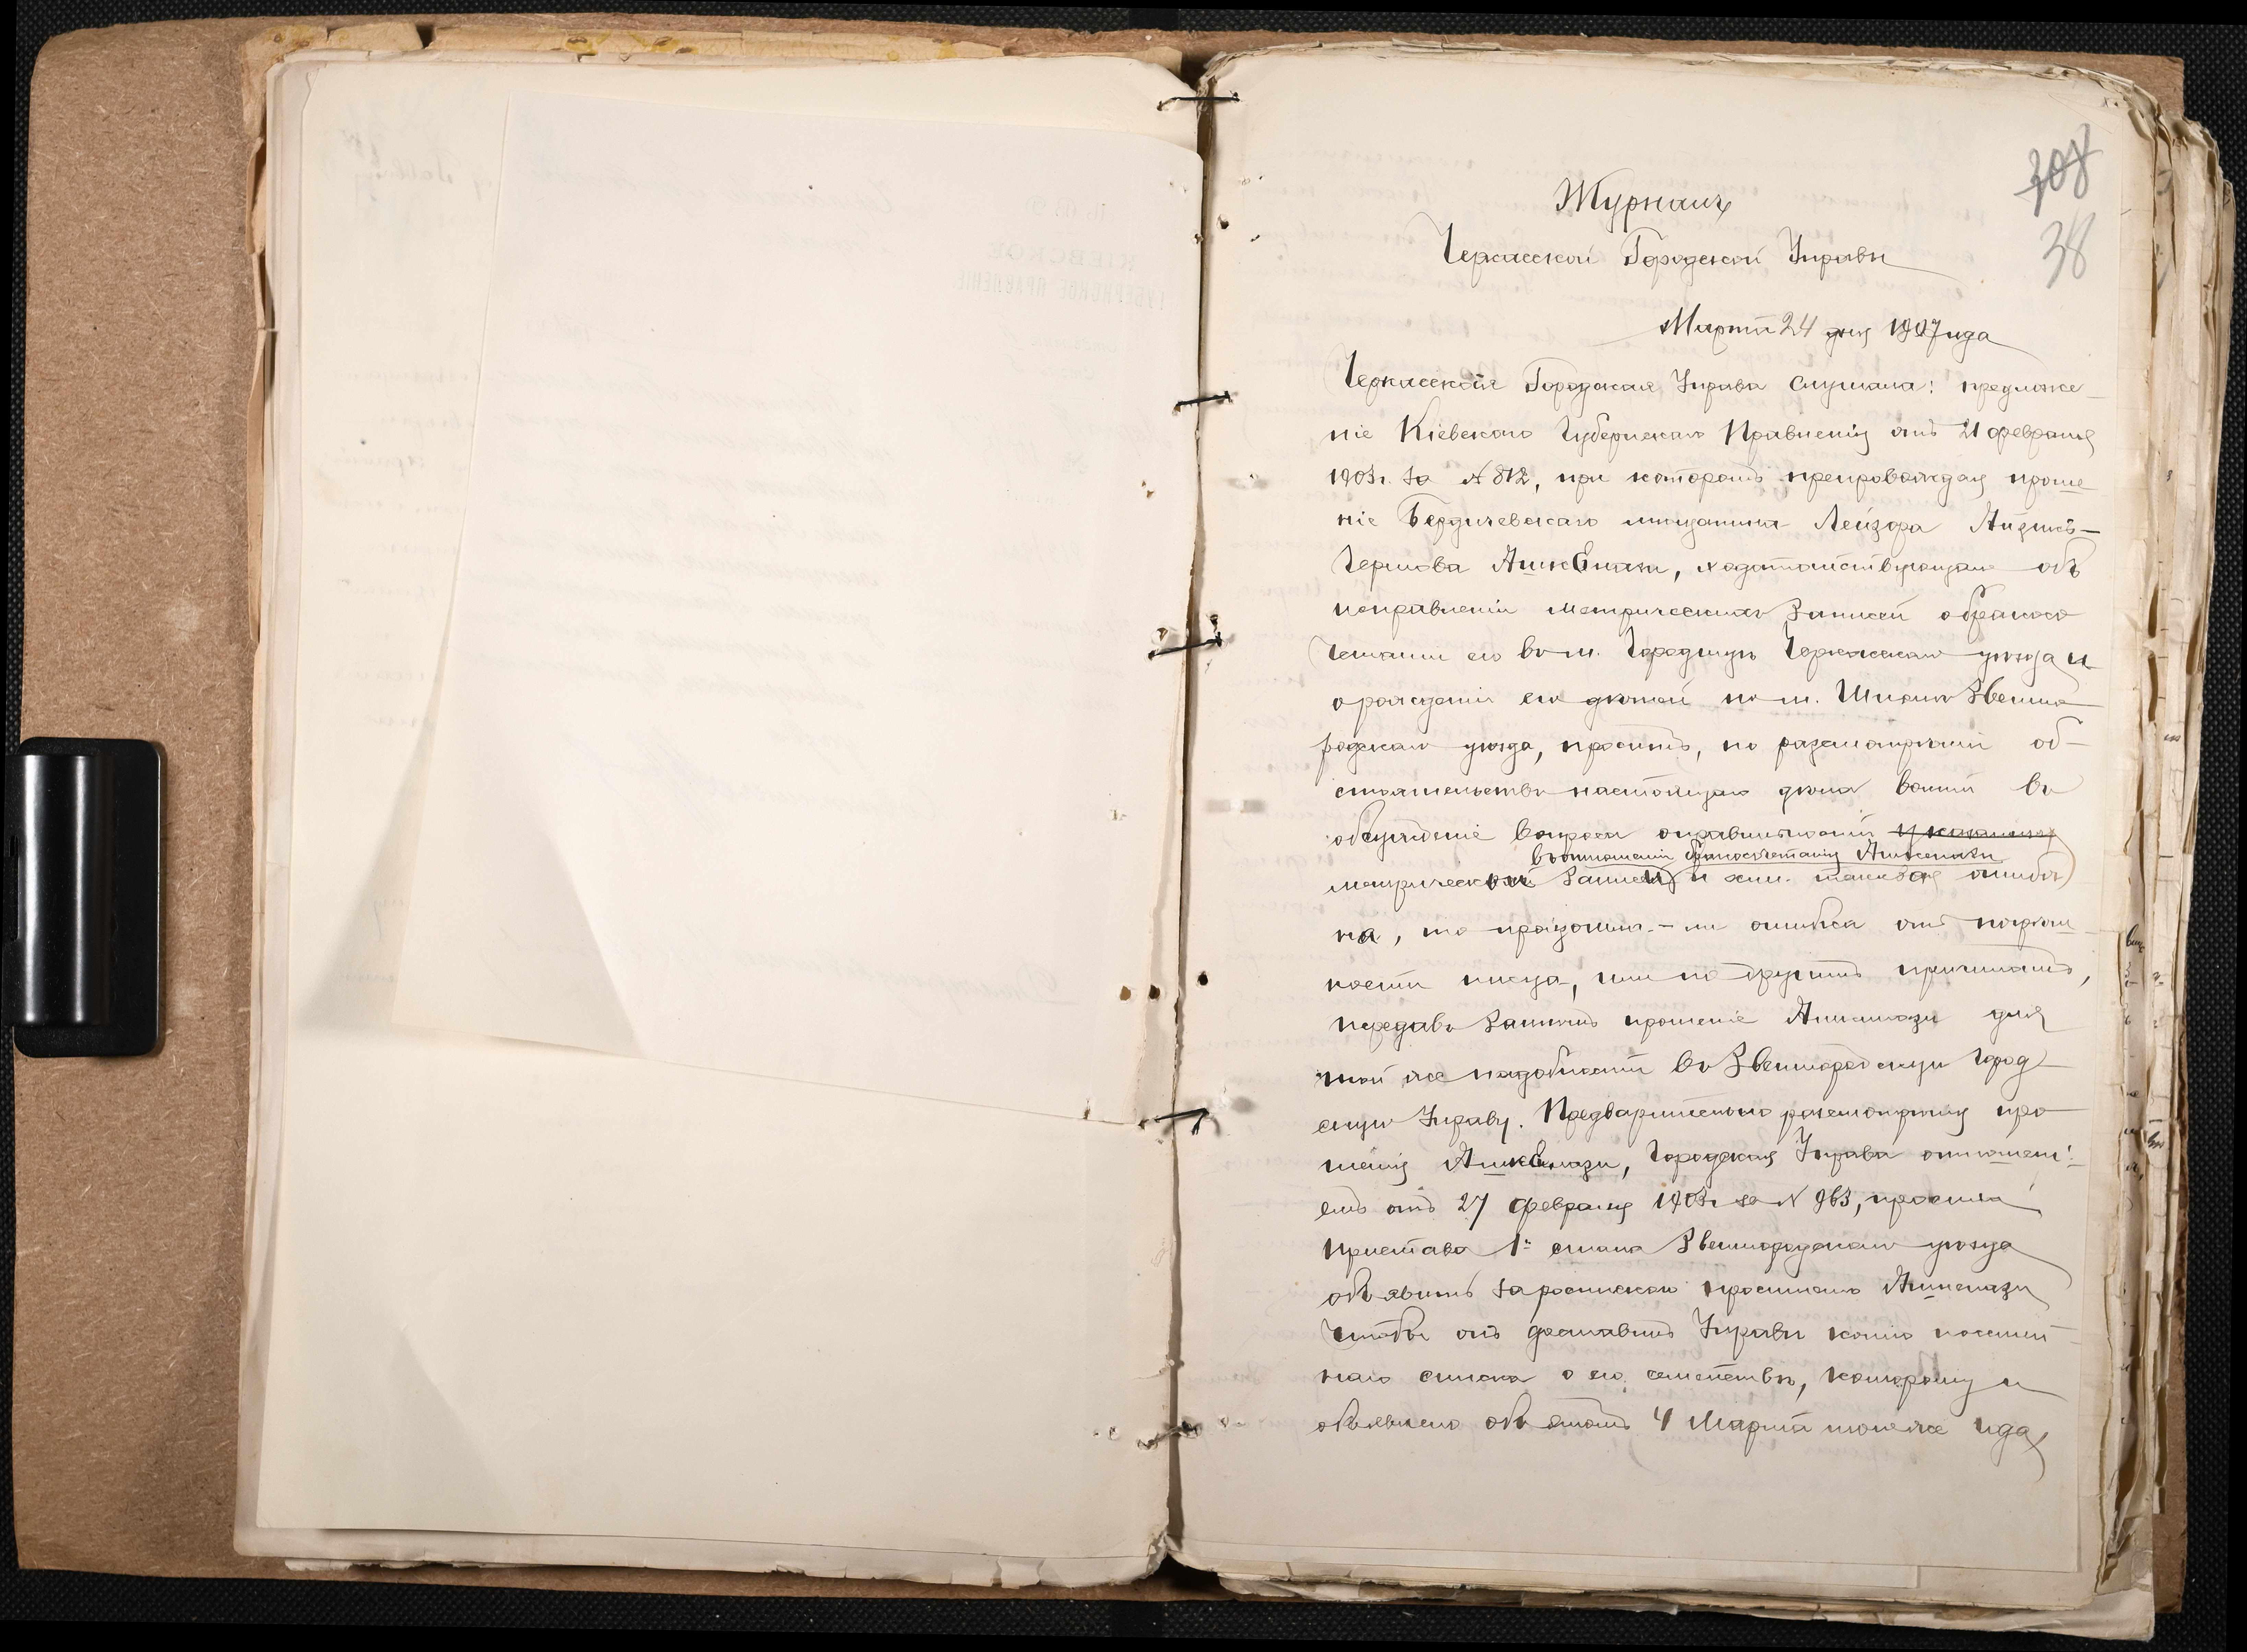 308
38
Журналъ
Черкасской Городской Управы
Марта 24 дня 1907 года
Черкасская Городская Управа слушала: предложе-
ніе Кіевскаго Губернскаго Правленія отъ 21 февраля
1903 г. за № 812, при которомъ препровождая проше-
ніе Бердичевскаго мѣщанина Лейзора Айзикъ-
Гершова Ашкенази, ходатайствующаго объ
исправленіи метрическихъ записей о бракосо-
четаніи его въ м. Городищѣ Черкасскаго уѣзда и
о рожденіи его дѣтей по м. Шполѣ Звениго-
родскаго уѣзда, проситъ, по разсмотрѣніи об-
стоятельствъ настоящаго дѣла войти въ
обсужденіе вопроса о правильности указанной
въ отношеніи бракосочетанія Ашкенази
метрической записи, и если таковая ошибоч
на, то произошла-ли ошибка отъ погрѣш-
ности писца, или по другимъ причинамъ,
передавъ затѣмъ прошеніе Ашкенази для
той же надобности въ Звенигородскую Город-
скую Управу. Предварительно разсмотрѣнія про-
шенія Ашкенази, Городская Управа отношені-
емъ отъ 27 февраля 1903 г. за № 963, просила
Пристава 1го стана Звенигородскаго уѣзда
объявить за роспискою просителю Ашкенази
чтобы онъ доставилъ Управѣ копію посемей-
наго списка о его семействѣ, которому и
объявлено объ этомъ 4 Марта того же года